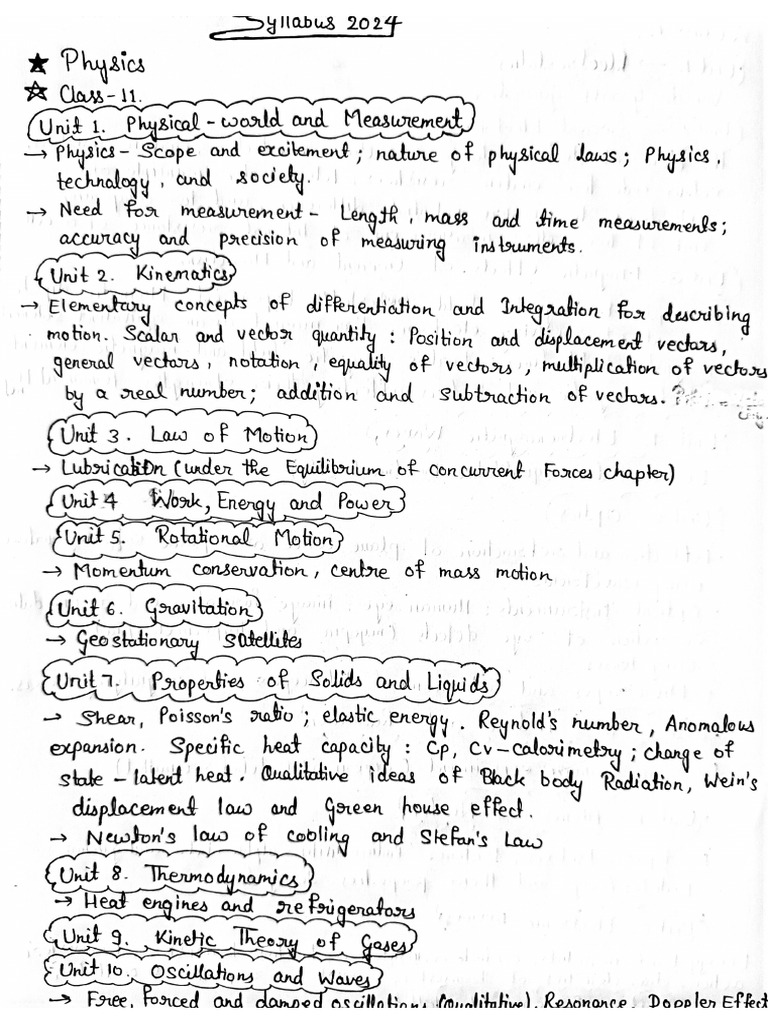 Syllabus 2024
★ Physics
☆ Class-11.
Unit 1. Physical-world and Measurement
→ Physics - Scope and excitement; nature of physical laws; Physics,
technology, and society.
→ Need for measurement - Length, mass and time measurements;
accuracy and precision of measuring instruments.
Unit 2. Kinematics
→ Elementary concepts of differentiation and Integration for describing
motion. Scalar and vector quantity : Position and displacement vectors,
general vectors, notation, equality of vectors, multiplication of vectors
by a real number; addition and subtraction of vectors.
Unit 3. Law of Motion
→ Lubrication (under the Equilibrium of concurrent Forces chapter)
Unit 4 Work, Energy and Power
Unit 5. Rotational Motion
→ Momentum conservation, centre of mass motion
Unit 6. Gravitation
→ Geostationary satellites
Unit 7. Properties of Solids and Liquids
→ Shear, Poisson's ratio; elastic energy. Reynold's number, Anomalous
expansion. Specific heat capacity : Cp, Cv-calorimetry; change of
state - latent heat. Qualitative ideas of Black body Radiation, Wein's
displacement law and Green house effect.
→ Newton's law of cooling and Stefan's Law
Unit 8. Thermodynamics
→ Heat engines and refrigerators
Unit 9. Kinetic Theory of Gases
Unit 10. Oscillations and Waves
→ Free, forced and damped oscillations (Qualitative), Resonance, Doppler Effect